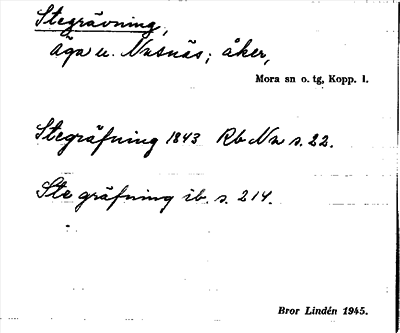 Stegrävning,
äga u. Nusnäs; åker,
Mora sn o. tg, Kopp. l.
Stegräfning 1843 Rb Nu s. 22.
Ste gräfning ib. s. 214.
Bror Lindén 1945.